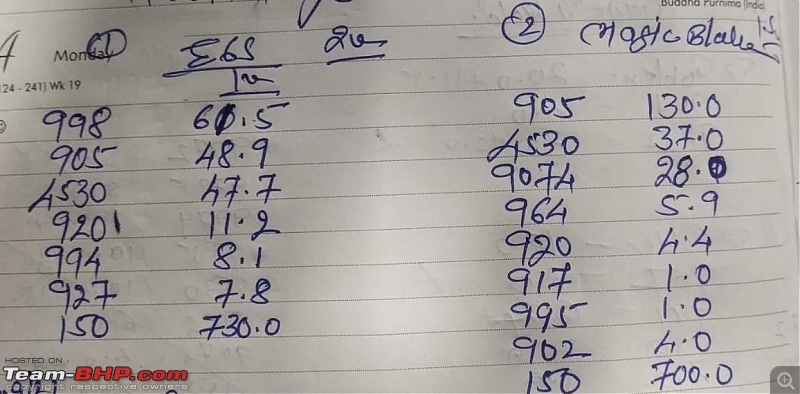 Buddha Purnima (India)
Monday
① E6S 2v
1v
124 - 241) Wk 19
998 60.5
905 48.9
4530 47.7
920 11.2
994 8.1
927 7.8
150 730.0
② Magic Blake 1.5
905 130.0
4530 37.0
9074 28.0
964 5.9
920 4.4
917 1.0
995 1.0
902 4.0
150 700.0
HOSTED ON :
Team-BHP.com
copyright respective owners